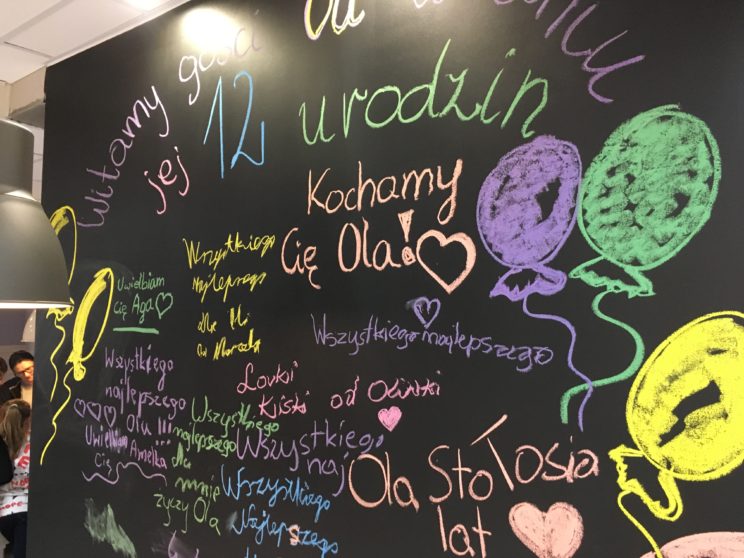 Witamy gości
jej 12 urodzin
Kochamy
Cię Ola!
Uwielbiam
Cię Aga
Wszystkiego
Wszystkiego najlepszego
Wszystkiego
najlepszego
Olu !!!
Uwielbiam
Cię
Amelka
Lovki
Kiski od Olinki
Wszystkiego
najlepszego
dla
mnie
życzy Ola
Wszystkiego
naj
Wszystkiego
Najlepszego
Ola Sto
lat
Tosia